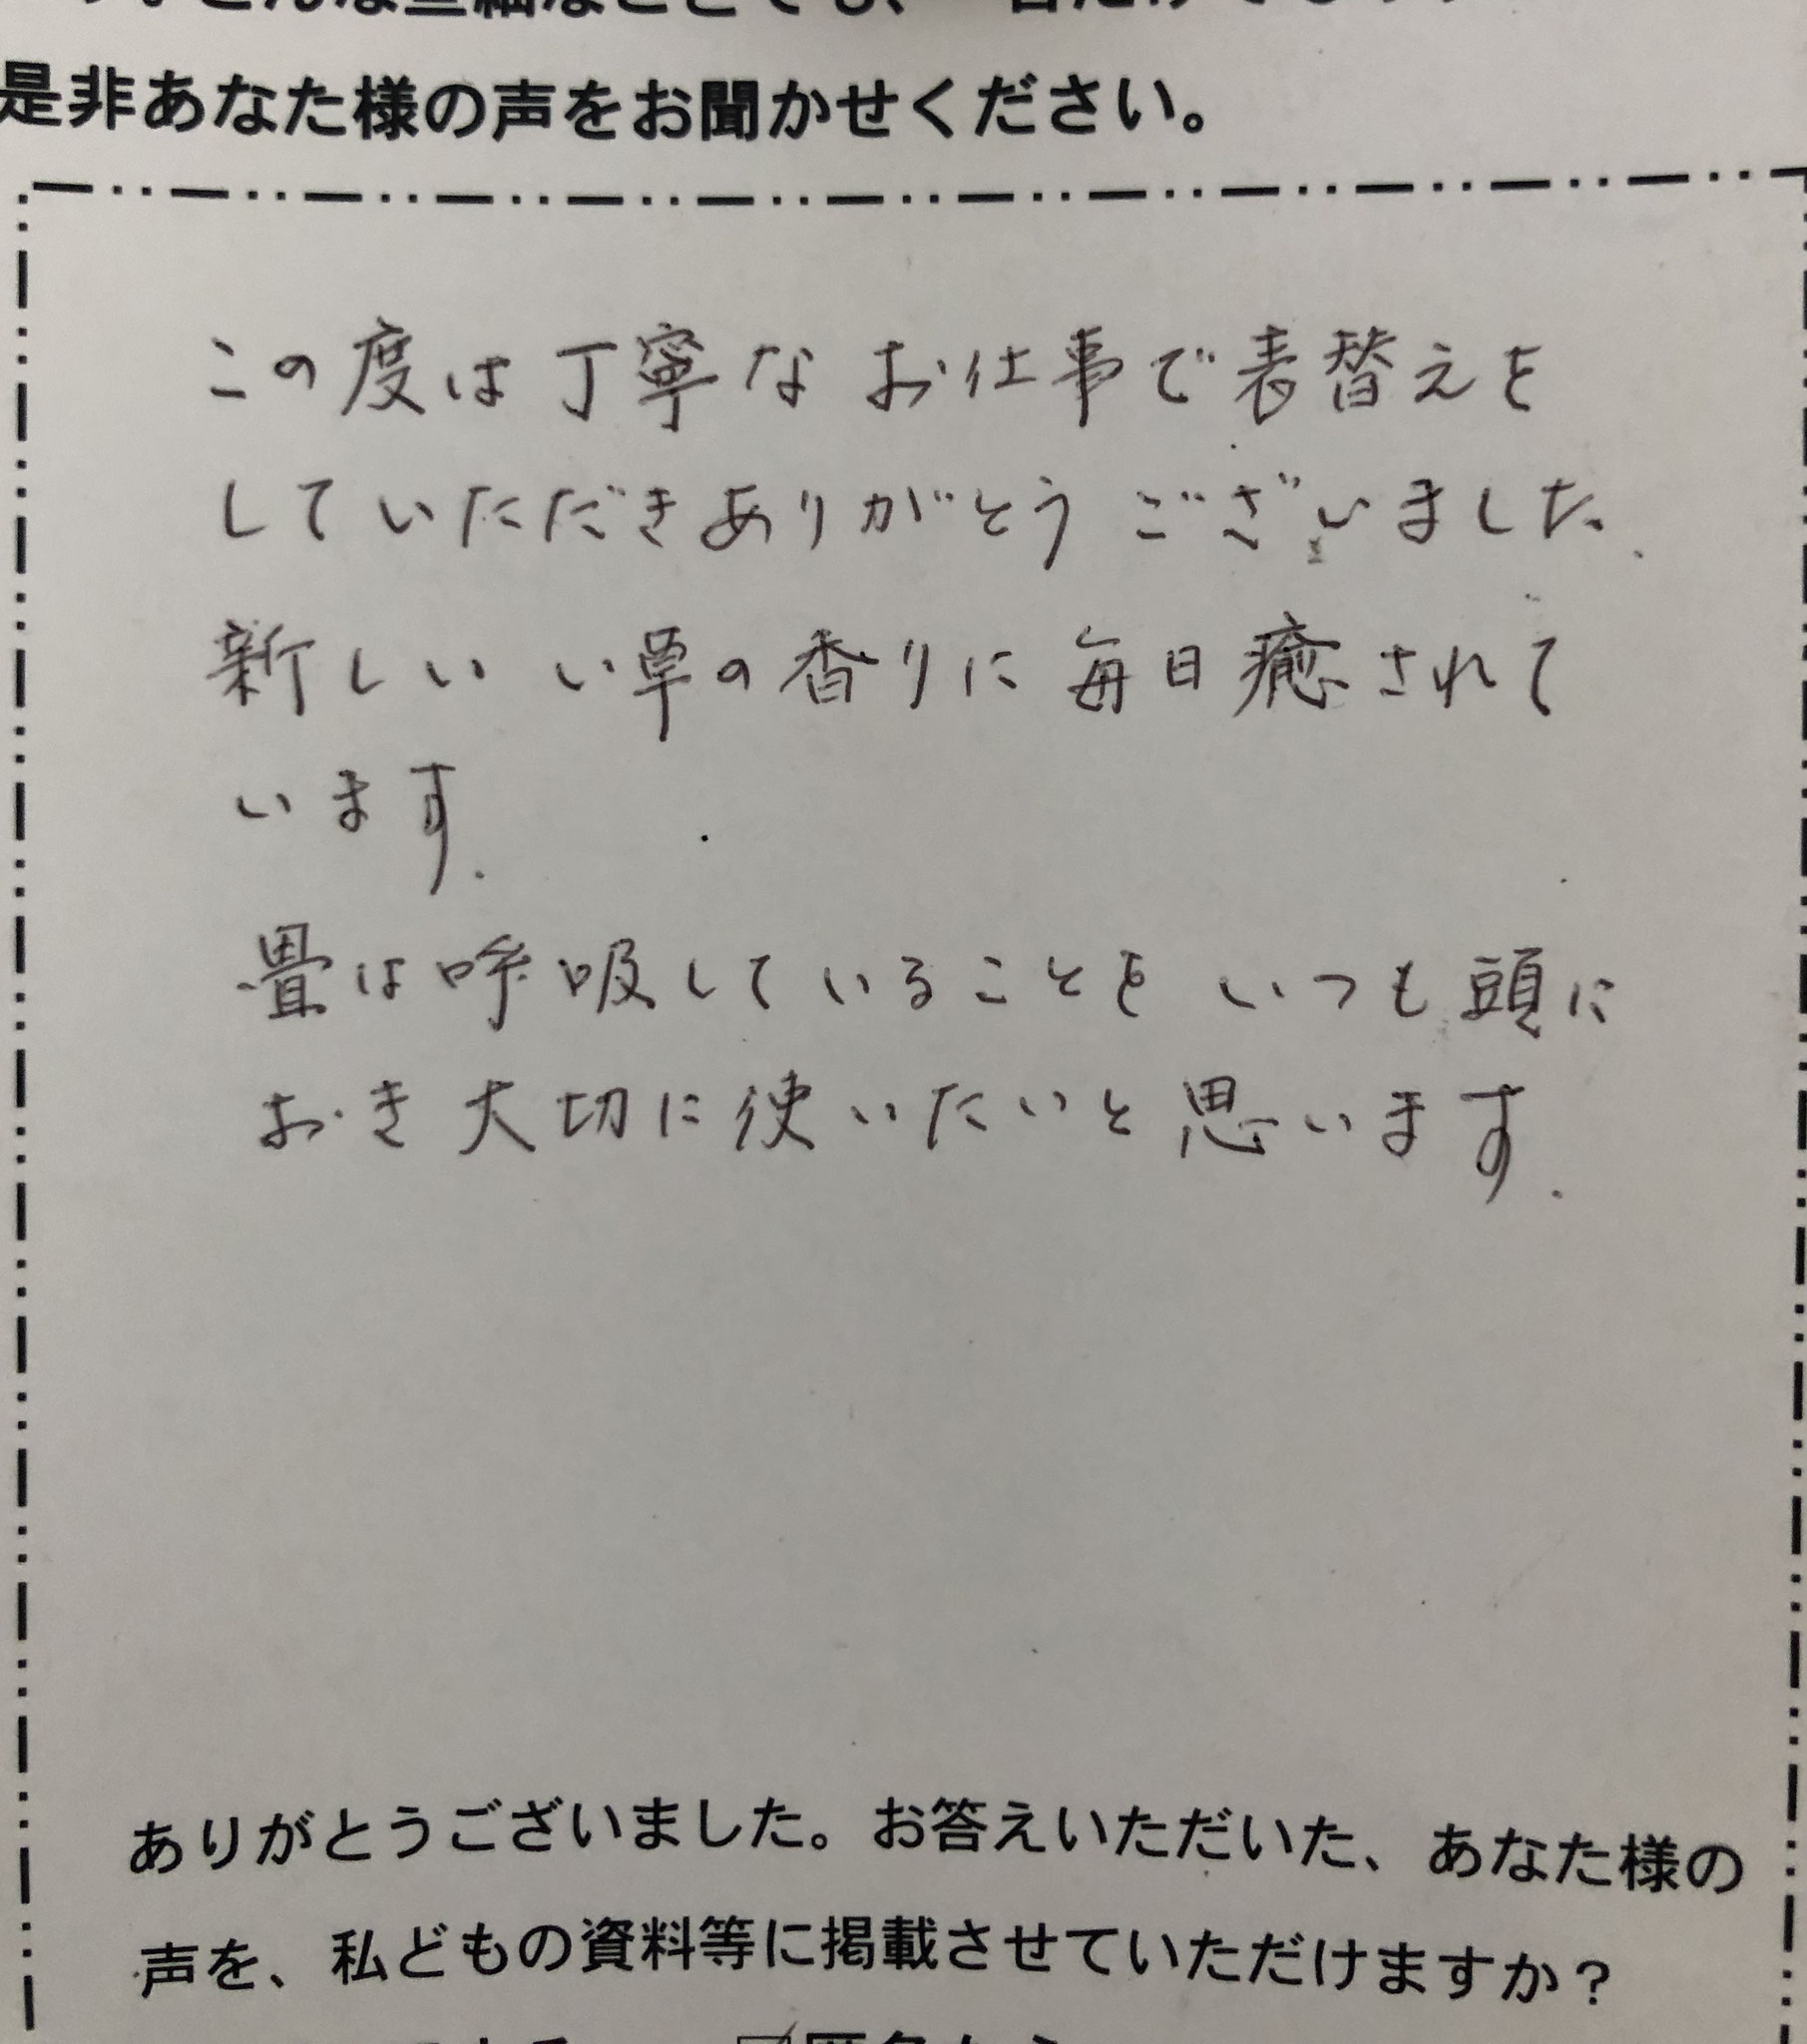 是非あなた様の声をお聞かせください。
この度は丁寧なお仕事で表替えを
していただきありがとうございました.
新しいい草の香りに毎日癒されて
います.
畳は呼吸していることをいつも頭に
おき大切に使いたいと思います.
ありがとうございました。お答えいただいた、あなた様の
声を、私どもの資料等に掲載させていただけますか？